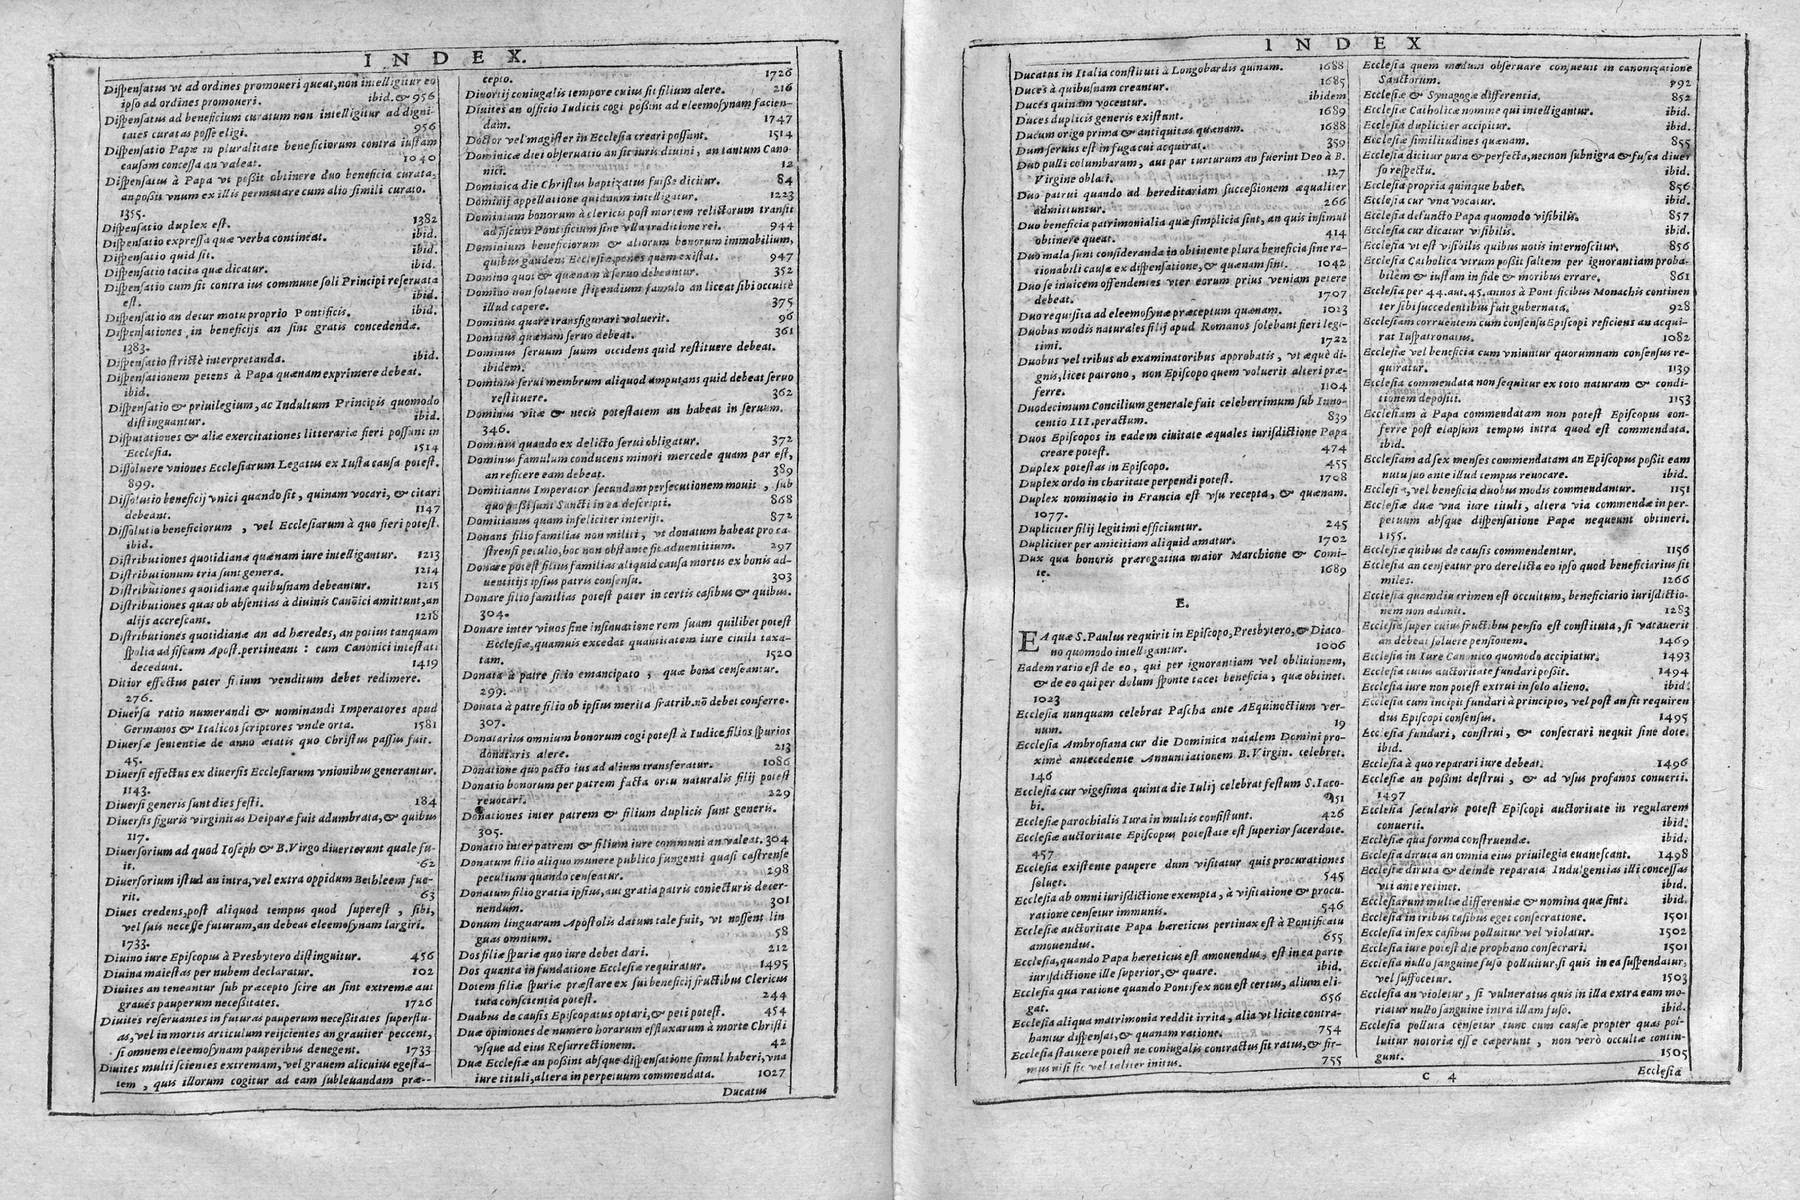 INDEX.
Dispensatus vt ad ordines promoueri queat, non intelligitur eo
ipso ad ordines promoueri. ibid. & 956
Dispensatus ad beneficium curatum non intelligitur ad digni-
tates curatas posse eligi. 956
Dispensatio Papæ in pluralitate beneficiorum contra iustam
causam concessa an valeat. 1040
Dispensatus à Papa vt possit obtinere duo beneficia curata,
an possit vnum ex illis permutare cum alio simili curato.
1355.
Dispensatio duplex est. 1382
Dispensatio expressa quæ verba contineat. ibid.
Dispensatio quid sit. ibid.
Dispensatio tacita quæ dicatur. ibid.
Dispensatio cum sit contra ius commune soli Principi reseruata
est. ibid.
Dispensatio an detur motu proprio Pontificis. ibid.
Dispensationes in beneficijs an sint gratis concedendæ.
1383.
Dispensatio strictè interpretanda. ibid.
Dispensationem petens à Papa quænam exprimere debeat.
ibid.
Dispensatio & priuilegium, ac Indultum Principis quomodo
distinguantur. ibid.
Disputationes & aliæ exercitationes litterariæ fieri possunt in
Ecclesia. 1514
Dissoluere vniones Ecclesiarum Legatus ex Iusta causa potest.
899.
Dissolutio beneficij vnici quando sit, quinam vocari, & citari
debeant. 1147
Dissolutio beneficiorum, vel Ecclesiarum à quo fieri potest.
ibid.
Distributiones quotidianæ quænam iure intelligantur. 1213
Distributionum tria sunt genera. 1214
Distributiones quotidianæ quibusnam debeantur. 1215
Distributiones quas ob absentias à diuinis Canōici amittunt, an
alijs accrescant. 1218
Distributiones quotidianæ an ad hæredes, an potius tanquam
spolia ad fiscum Apost. pertineant: cum Canonici intestati
decedunt. 1419
Ditior effectus pater filium venditum debet redimere.
276.
Diuersa ratio numerandi & nominandi Imperatores apud
Germanos & Italicos scriptores vnde orta. 1581
Diuersæ sententiæ de anno ætatis quo Christus passus fuit.
45.
Diuersi effectus ex diuersis Ecclesiarum vnionibus generantur.
1143.
Diuersi generis sunt dies festi. 184
Diuersis figuris virginitas Deiparæ fuit adumbrata, & quibus
117.
Diuersorium ad quod Ioseph & B. Virgo diuerterunt quale fu-
it. 62
Diuersorium istud an intra, vel extra oppidum Bethleem fue-
rit. 63
Diues credens, post aliquod tempus quod superest, sibi,
vel suis necesse futurum, an debeat eleemosynam largiri.
1733.
Diuino iure Episcopus à Presbytero distinguitur. 456
Diuina maiestas per nubem declaratur. 102
Diuites an teneantur sub præcepto scire an sint extremæ aut
graues pauperum necessitates. 1726
Diuites reseruantes in futuras pauperum necessitates superflu-
as, vel in mortis articulum reijcientes an grauiter peccent,
si omnem eleemosynam pauperibus denegent. 1733
Diuites multi scientes extremam, vel grauem alicuius egesta-
tem, quis illorum cogitur ad eam subleuandam præ-
cepto. 1726
Diuortij coniugalis tempore cuius sit filium alere. 216
Diuites an officio Iudicis cogi possint ad eleemosynam facien-
dam. 1747
Doctor vel magister in Ecclesia creari possunt. 1514
Dominicæ diei obseruatio an sit iuris diuini, an tantum Cano-
nici. 12
Dominica die Christus baptizatus fuisse dicitur. 84
Dominij appellatione quidnam intelligatur. 1223
Dominium bonorum à clericis post mortem relictorum transit
ad fiscum Pontificium sine vlla traditione rei. 944
Dominium beneficiorum & aliorum bonorum immobilium,
quibus gaudent Ecclesiæ, penes quem existat. 947
Domino quot & quænam à seruo debeantur. 352
Domino non soluente stipendium famulo an liceat sibi occultè
illud capere. 375
Dominus quare transfigurari voluerit. 96
Dominus quænam seruo debeat. 361
Dominus seruum suum occidens quid restituere debeat.
ibidem.
Dominus serui membrum aliquod amputans quid debeat seruo
restituere. 362
Dominus vitæ & necis potestatem an habeat in seruum.
346.
Dominus quando ex delicto serui obligatur. 372
Dominus famulum conducens minori mercede quam par est,
an reficere eam debeat. 389
Domitianus Imperator secundam persecutionem mouit, sub
quo passi sunt Sancti in ea descripti. 868
Domitianus quam infeliciter interijt. 872
Donans filio familias non militi, vt donatum habeat pro ca-
strensi peculio, hoc non obstante fit aduentitium. 297
Donare potest filius familias aliquid causa mortis ex bonis ad-
uentitijs ipsius patris consensu. 303
Donare filio familias potest pater in certis casibus & quibus.
304.
Donare inter viuos sine insinuatione rem suam quilibet potest
Ecclesiæ, quamuis excedat quantitatem iure ciuili taxa-
tam. 1520
Donata à patre filio emancipato, quæ bona censeantur.
299.
Donata à patre filio ob ipsius merita fratrib. nō debet conferre.
307.
Donatarius omnium bonorum cogi potest à Iudice filios spurios
donatoris alere. 213
Donatione quo pacto ius ad alium transferatur. 1086
Donatio bonorum per patrem facta ortu naturalis filij potest
reuocari. 229
Donationes inter patrem & filium duplicis sunt generis.
305.
Donatio inter patrem & filium iure communi an valeat. 304
Donatum filio aliquo munere publico fungenti quasi castrense
peculium quando censeatur. 298
Donatum filio gratia ipsius, aut gratia patris coniecturis decer-
nendum. 301
Donum linguarum Apostolis datum tale fuit, vt nossent lin
guas omnium. 58
Dos filiæ spuriæ quo iure debet dari. 212
Dos quanta in fundatione Ecclesiæ requiratur. 1495
Dotem filiæ spuriæ præstare ex sui beneficij fructibus Clericus
tuta conscientia potest. 244
Duabus de causis Episcopatus optari, & peti potest. 454
Duæ opiniones de numero horarum effluxarum à morte Christi
vsque ad eius Resurrectionem. 42
Duæ Ecclesiæ an possint absque dispensatione simul haberi, vna
iure tituli, altera in perpetuum commendata. 1027
Ducatus
INDEX
Ducatus in Italia constituti à Longobardis quinam. 1688
Duces à quibusnam creantur. 1685
Duces quinam vocentur. ibidem
Duces duplicis generis existunt. 1689
Ducum origo prima & antiquitas quænam. 1688
Dum seruus est in fuga cui acquirat. 359
Duo pulli columbarum, aut par turturum an fuerint Deo à B.
Virgine oblati. 127
Duo patrui quando ad hereditariam successionem æqualiter
admittuntur. 266
Duo beneficia patrimonialia quæ simplicia sint, an quis insimul
obtinere queat. 414
Duo mala sunt consideranda in obtinente plura beneficia sine ra-
tionabili causa ex dispensatione, & quænam sint. 1042
Duo se inuicem offendentes vter eorum prius veniam petere
debeat. 1707
Duo requisita ad eleemosynæ præceptum quænam. 1023
Duobus modis naturales filij apud Romanos solebant fieri legi-
timi. 1722
Duobus vel tribus ab examinatoribus approbatis, vt æquè di-
gnis, licet patrono, non Episcopo quem voluerit alteri præ-
ferre. 1104
Duodecimum Concilium generale fuit celeberrimum sub Inno-
centio III. peractum. 839
Duos Episcopos in eadem ciuitate æquales iurisdictione Papa
creare potest. 474
Duplex potestas in Episcopo. 455
Duplex ordo in charitate perpendi potest. 1708
Duplex nominatio in Francia est vsu recepta, & quænam.
1077.
Dupliciter filij legitimi efficiuntur. 245
Dupliciter per amicitiam aliquid amatur. 1702
Dux qua honoris prærogatiua maior Marchione & Comi-
te. 1689
E.
EA quæ S. Paulus requirit in Episcopo, Presbytero, & Diaco-
no quomodo intelligantur. 1006
Eadem ratio est de eo, qui per ignorantiam vel obliuionem,
& de eo qui per dolum sponte tacet beneficia, quæ obtinet.
1023
Ecclesia nunquam celebrat Pascha ante AEquinoctium ver-
num. 19
Ecclesia Ambrosiana cur die Dominica natalem Domini pro-
ximè antecedente Annuntiationem B. Virgin. celebret.
146
Ecclesia cur vigesima quinta die Iulij celebrat festum S. Iaco-
bi. 151
Ecclesiæ parochialis Iura in multis consistunt. 426
Ecclesiæ auctoritate Episcopus potestate est superior sacerdote.
457
Ecclesia existente paupere dum visitatur quis procurationes
soluet. 545
Ecclesia ab omni iurisdictione exempta, à visitatione & procu-
ratione censetur immunis. 546
Ecclesiæ auctoritate Papa hæreticus pertinax est à Pontificatu
amouendus. 655
Ecclesia, quando Papa hæreticus est amouendus, est in ea parte
iurisdictione ille superior, & quare. ibid.
Ecclesia qua ratione quando Pontifex non est certus, alium eli-
gat. 656
Ecclesia aliqua matrimonia reddit irrita, alia vt licite contra-
hantur dispensat, & quanam ratione. 754
Ecclesia statuere potest ne coniugalis contractus sit ratus, & fir-
mus nisi sic vel taliter initus. 755
Ecclesia quem modum obseruare consueuit in canonizatione
Sanctorum. 892
Ecclesiæ & Synagogæ differentia. 852
Ecclesiæ Catholicæ nomine qui intelligantur. ibid.
Ecclesia dupliciter accipitur. ibid.
Ecclesiæ similitudines quænam. 855
Ecclesia dicitur pura & perfecta, nec non subnigra & fusca diuer
so respectu. ibid.
Ecclesia propria quinque habet. 856
Ecclesia cur vna vocatur. ibid.
Ecclesia defuncto Papa quomodo visibilis. 857
Ecclesia cur dicatur visibilis. ibid.
Ecclesia vt est visibilis quibus notis internoscitur. 856
Ecclesia Catholica vtrum possit saltem per ignorantiam proba-
bilem & iustam in fide & moribus errare. 861
Ecclesia per 44. aut. 45. annos à Pontificibus Monachis continen
ter sibi succedentibus fuit gubernata. 928
Ecclesiam corruentem cum consensu Episcopi reficiens an acqui-
rat Iuspatronatus. 1082
Ecclesiæ vel beneficia cum vniuntur quorumnam consensus re-
quiratur. 1139
Ecclesia commendata non sequitur ex toto naturam & condi-
tionem depositi. 1153
Ecclesiam à Papa commendatam non potest Episcopus con-
ferre post elapsum tempus intra quod est commendata.
ibid.
Ecclesiam ad sex menses commendatam an Episcopus possit eam
nutu suo ante illud tempus reuocare. ibid.
Ecclesiæ, vel beneficia duobus modis commendantur. 1151
Ecclesiæ duæ vna iure tituli, altera via commendæ in per-
petuum absque dispensatione Papæ nequeunt obtineri.
1155.
Ecclesiæ quibus de causis commendentur. 1156
Ecclesia an censeatur pro derelicta eo ipso quod beneficiarius sit
miles. 1266
Ecclesia quamdiu crimen est occultum, beneficiario iurisdictio-
nem non adimit. 1283
Ecclesia super cuius fructibus pensio est constituta, si vacauerit
an debeat soluere pensionem. 1469
Ecclesia in Iure Canonico quomodo accipiatur. 1493
Ecclesia cuius auctoritate fundari possit. 1494
Ecclesia iure non potest extrui in solo alieno. ibid.
Ecclesia cum incipit fundari à principio, vel post an sit requiren
dus Episcopi consensus. 1495
Ecclesia fundari, construi, & consecrari nequit sine dote.
ibid.
Ecclesia à quo reparari iure debeat. 1496
Ecclesiæ an possint destrui, & ad vsus profanos conuerti.
1497
Ecclesia sæcularis potest Episcopi auctoritate in regularem
conuerti. ibid.
Ecclesia qua forma construendæ. ibid.
Ecclesia diruta an omnia eius priuilegia euanescant. 1498
Ecclesia diruta & deinde reparata Indulgentias illi concessas
vti ante retinet. ibid.
Ecclesiarum multæ differentiæ & nomina quæ sint. ibid.
Ecclesia in tribus casibus eget consecratione. 1501
Ecclesia in sex casibus polluitur vel violatur. 1502
Ecclesia iure potest die prophano consecrari. 1501
Ecclesia nullo sanguine fuso polluitur, si quis in ea suspendatur,
vel suffocetur. 1503
Ecclesia an violetur, si vulneratus quis in illa extra eam mo-
riatur nullo sanguine intra illam fuso. ibid.
Ecclesia polluta censetur tunc cum causæ propter quas pol-
luitur notoriæ esse cæperunt, non verò occultæ contin-
gunt. 1505
C 4
Ecclesia